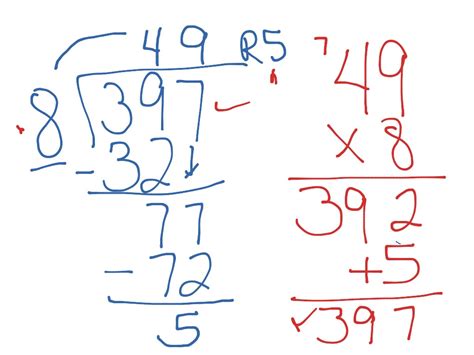 49 R5
8 397 ✓
-32↓
77
-72
5
7
49
x8
392
+5
✓397